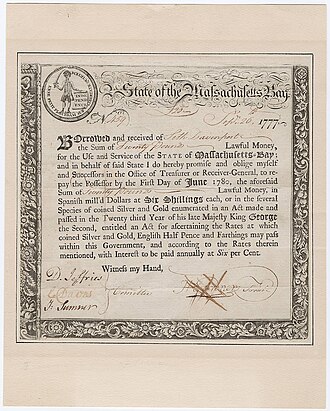 INDE
PEND
ENCE
State of the Massachusetts-Bay
No
1777
Borrowed and received of Seth Davenport
the Sum of Twenty pounds Lawful Money,
for the Use and Service of the STATE of Massachusetts-Bay;
and in behalf of said State I do hereby promise and oblige myself
and Successors in the Office of Treasurer or Receiver-General, to re-
pay the Possessor by the First Day of June 1780, the aforesaid
Sum of Twenty pounds Lawful Money, in
Spanish mill'd Dollars at Six Shillings each, or in the several
Species of coined Silver and Gold enumerated in an Act made and
passed in the Twenty third Year of his late Majesty King George
the Second, entitled an Act for ascertaining the Rates at which
coined Silver and Gold, English Half Pence and Farthings may pass
within this Government, and according to the Rates therein
mentioned, with Interest to be paid annually at Six per Cent.
Witness my Hand,
D. Jeffries
Comittee
J. Sumner